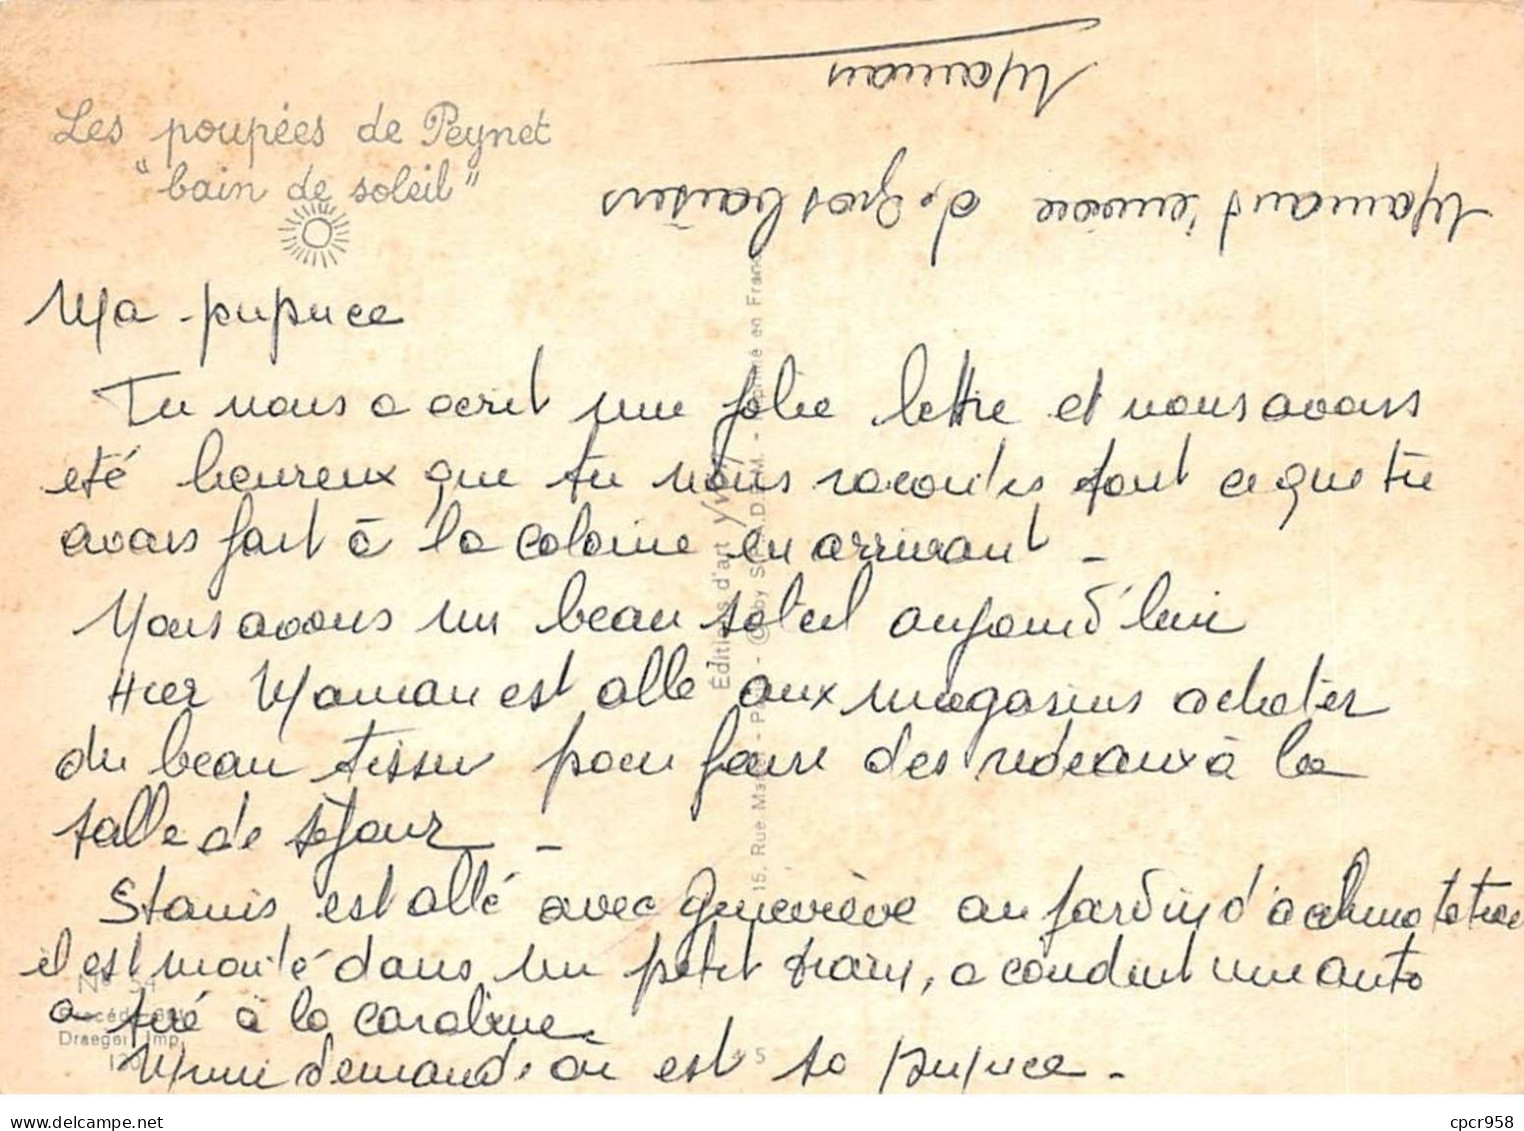 Les poupées de Peynet
"bain de soleil"
Ma pupuce
Tu nous a ecrit une jolie lettre et nous avons
été heureux que tu nous racontes tout ce que tu
avais fait à la colonie en arrivant -
Nous avons un beau soleil aujourd'hui
Hier Maman est allé aux magasins acheter
du beau tissu pour faire des rideaux à la
salle de séjour -
Stanis est allé avec Geneviève au jardin d'acclimatation
il est monté dans un petit train, a conduit une auto
a tiré à la carabine.
demande où est sa pupuce -
Maman t'envoie de gros baisers
Maman
Éditions d'art Yv
15, Rue Ma - Pa - © by S.P.A.D.E.M. - primé en Fran
N° 54
Draeger Imp.
5
cpcr958